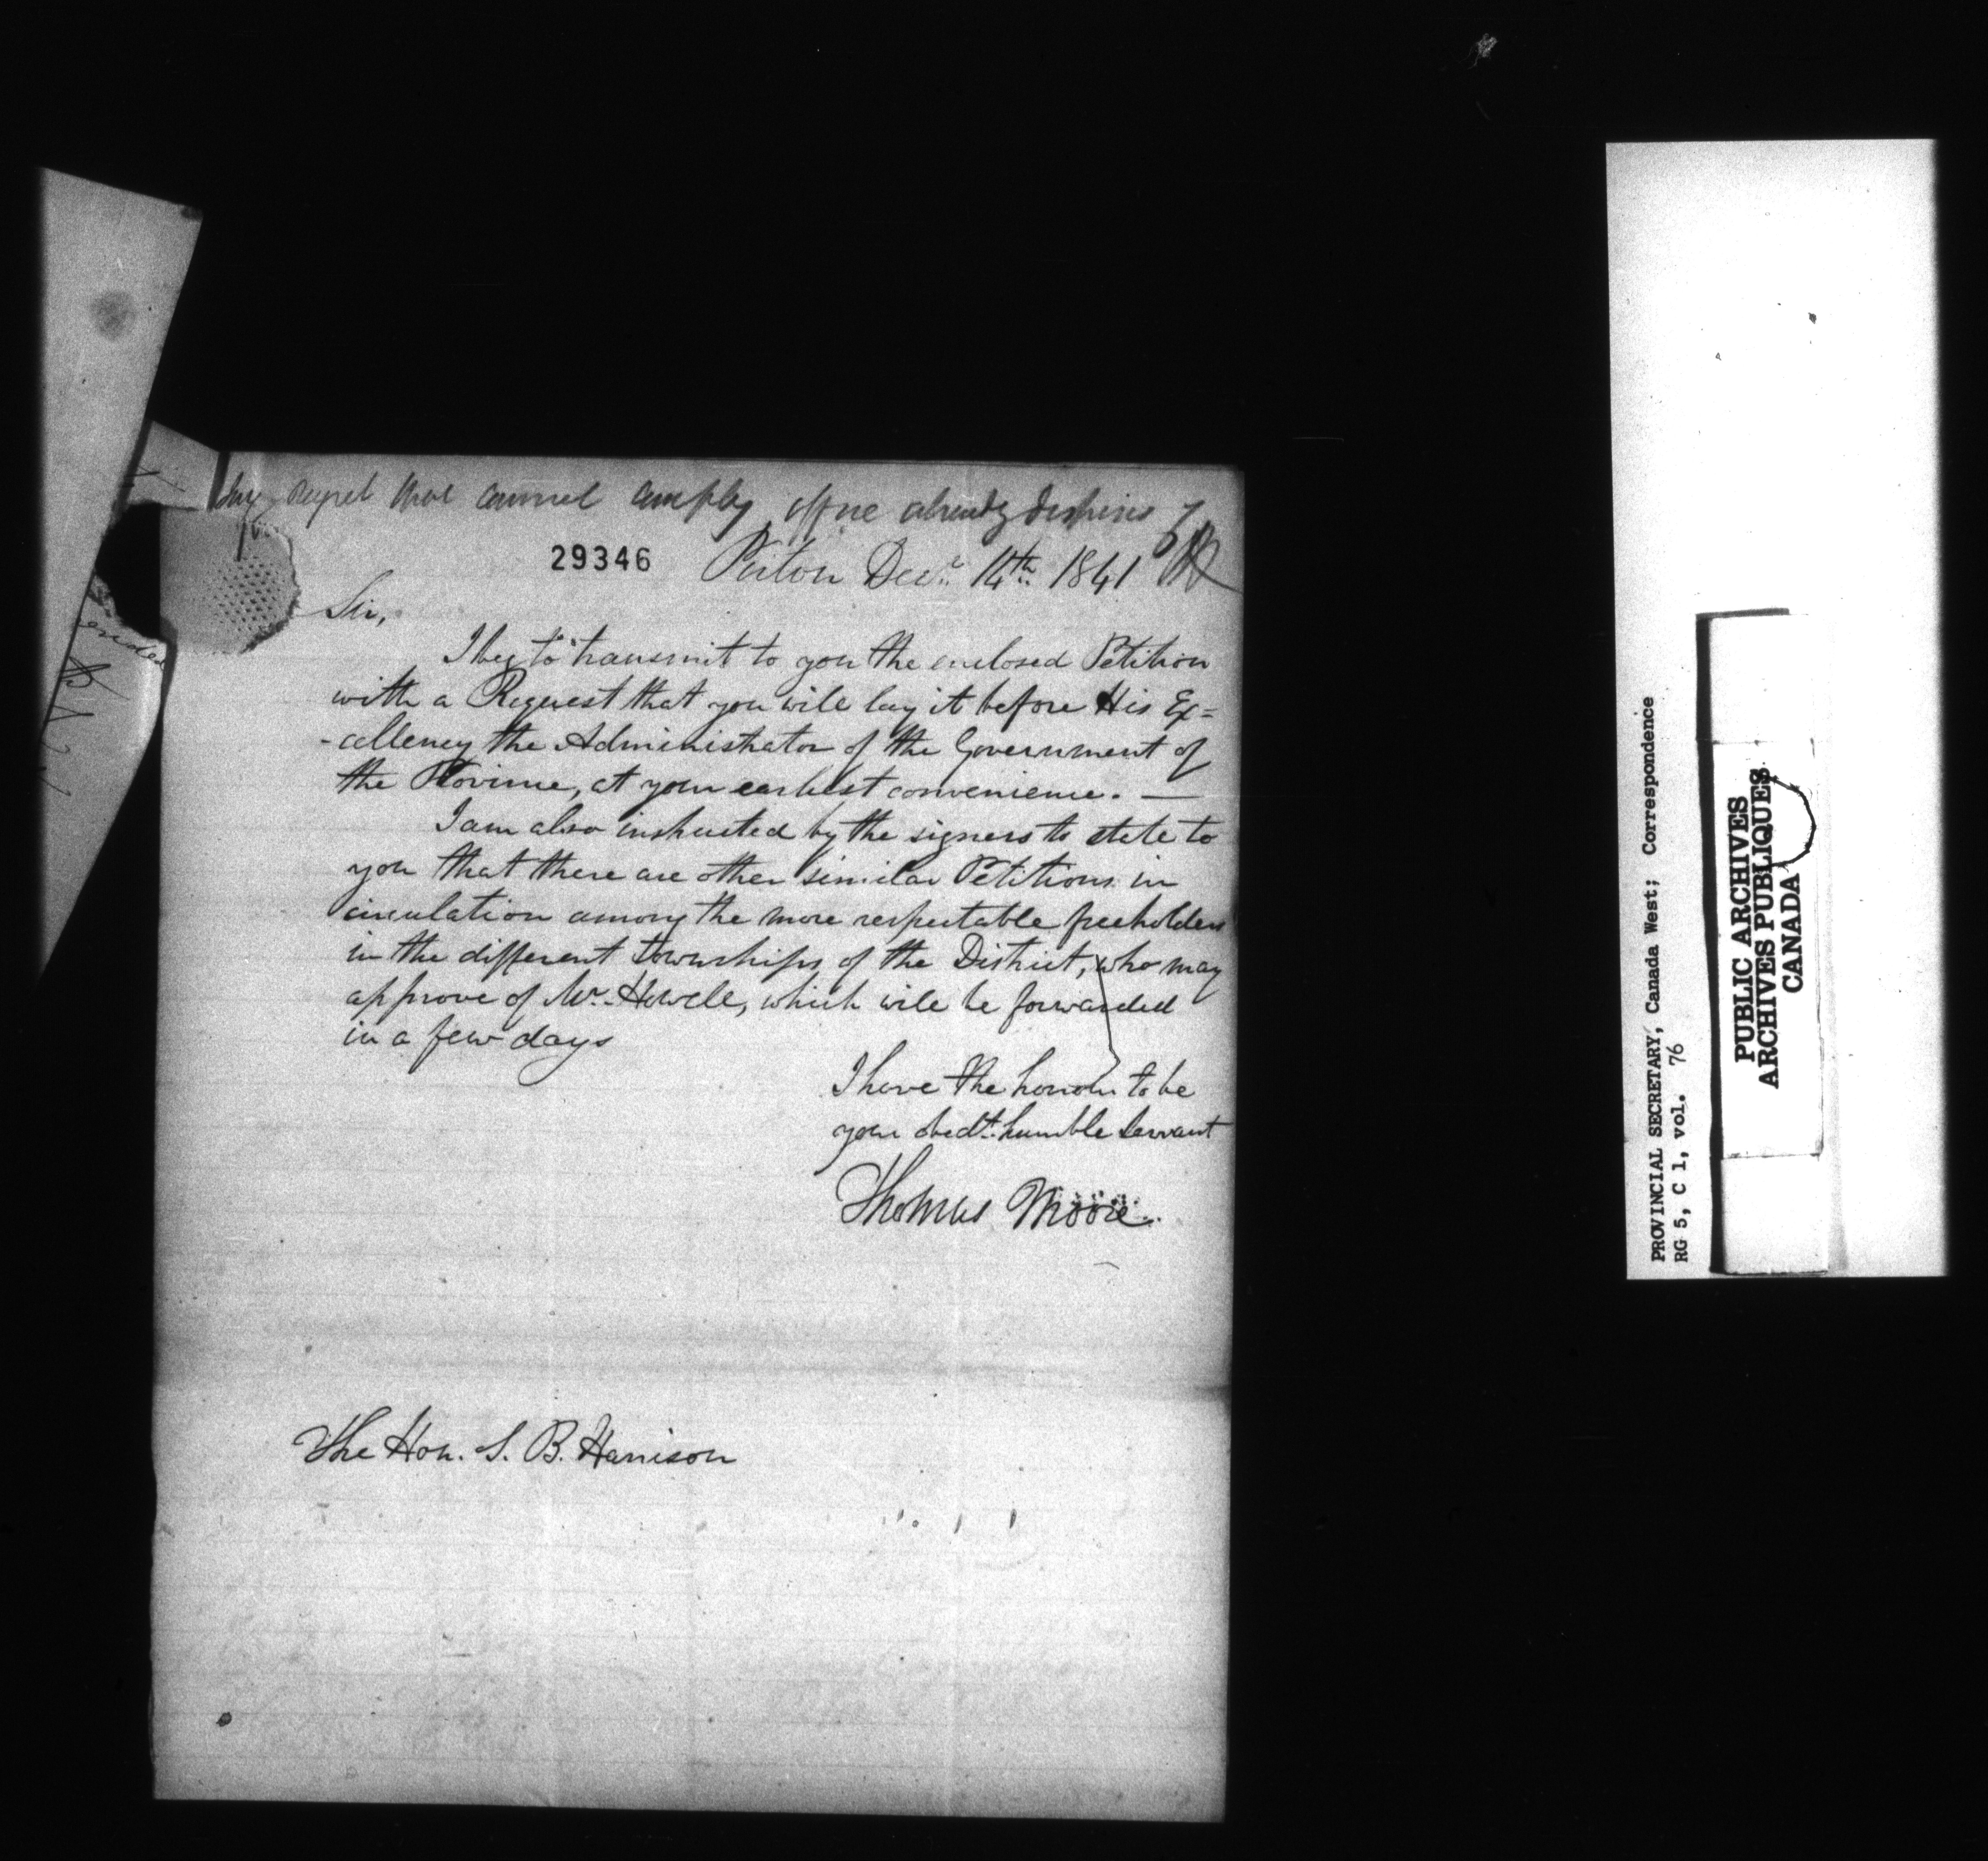 Say regret that cannot comply office already disposed
29346
Picton Decr. 14th. 1841
Sir,
I beg to transmit to you the enclosed Petition
with a Request that you will lay it before His Ex=
-cellency the Administrator of the Government of
the Province, at your earliest convenience. —
I am also instructed by the signers to state to
you that there are other similar Petitions in
circulation among the more respectable freeholders
in the different Townships of the District, who may
approve of Mr. Howell, which will be forwarded
in a few days
I have the honour to be
your obedt. humble Servant
Thomas Moore.
The Hon. S. B. Harrison
PROVINCIAL SECRETARY, Canada West; Correspondence
RG 5, C 1, vol. 76
PUBLIC ARCHIVES
ARCHIVES PUBLIQUES
CANADA